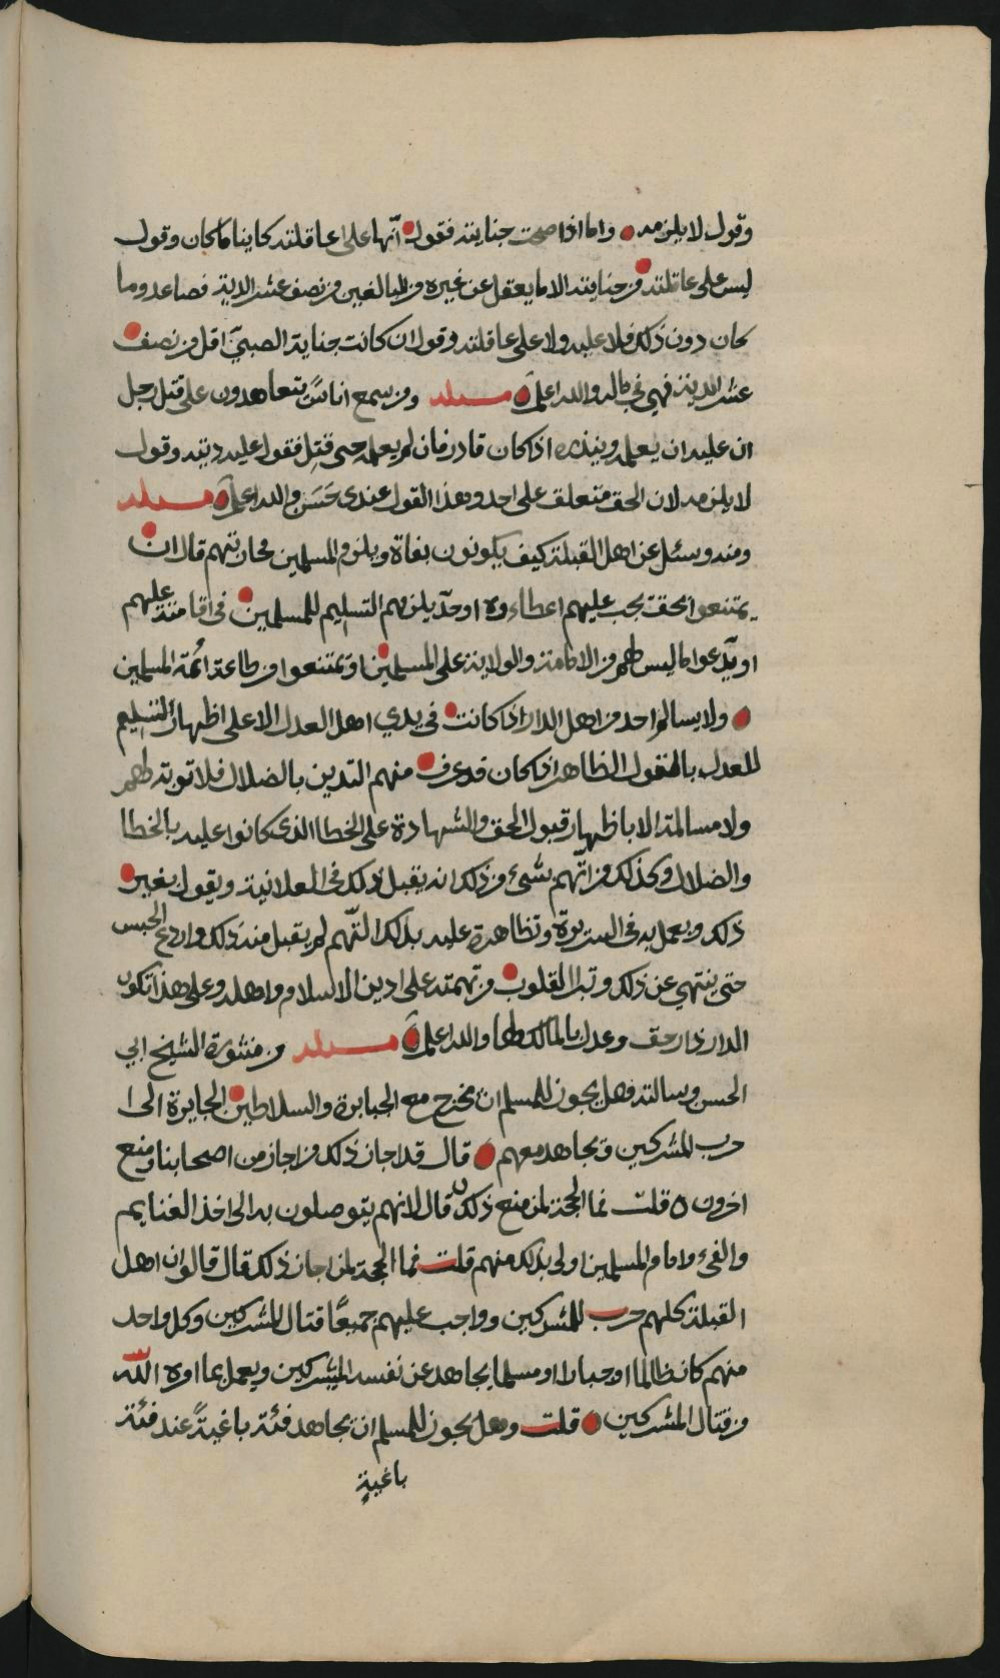 وقول لا يلزمه واما اذا صحت جنايته فقول انّها على عاقلته كاينا ما كان وقول
ليس على عاقلته من جنايته الا ما يعقل عن غيره من البالغين من نصف عشر الدية فصاعدا وما
كان دون ذلك فلا عليه ولا على عاقلته وقول ان كانت جناية الصبيّ اقل من نصف
عشر الدية فهي في ماله والله اعلم مسئلة ومن سمع اناسًا يتعاهدون على قتل رجل
ان عليه ان يعلمه وينذره اذا كان قادر فان لم يعلمه حتى قتل فقول عليه ديته وقول
لا يلزمه لان الحق متعلق على احد وهذا القول عندى حَسَن والله اعلم مسئلة
ومنه وسئل عن اهل القبلة كيف يكونون بغاة ويلزم المسلمين محاربتهم قال ان
يمتنعوا بحق يجب عليهم اعطاءوه او حدّ يلزمهم التسليم للمسلمين في اقامته عليهم
او يدّعوا ما ليس لهم من الامامة والولاية على المسلمين او يمتنعوا من طاعة ائمة المسلمين
ولا يسالم احد من اهل الدار اذا كانت في يدي اهل العدل الا على اظهار التسليم
للعدل بالقول الظاهر اذا كان قد عرف منهم التدين بالضلال فلا توبة لهم
ولا مسالمة الا باظهار قبول الحق والشهادة على الخطا الذى كانوا عليه بالخطا
والضلال وكذلك من اتّهم بشىء من ذلك انه يقبل ذلك في العلانية ويقول بغير
ذلك ويعمل به في السريرة وتظاهرة عليه بذلك التّهم لم يقبل منه ذلك واردع الحبس
حتى ينتهي عن ذلك وتبرا القلوب من تهمته على ادين الاسلام واهله وعلى هذا تكون
الدار دار حق وعدل بالمالك لها والله اعلم مسئلة من منثورة الشيخ ابي
الحسن وسالته فهل يجوز للمسلم ان يخرج مع الجبابرة والسلاطين الجايرة الى
حرب المشركين ويجاهد معهم قال قد اجاز ذلك من اجاز من اصحابنا ومنع
اخرون ٥ قلت فما الحجة لمن منع ذلك قال لانهم يتوصلون به الى اخذ الغنايم
والفيء وامام المسلمين اولى بذلك منهم قلت فما الحجة لمن اجاز ذلك قال قالوا ان اهل
القبلة كلهم حرب للمشركين وواجب عليهم جميعًا قتال المشركين وكل واحد
منهم كان ظالما او جبارا او مسلما يجاهد عن نفسه المشركين ويعمل بما امره اللّه
من قتال المشركين قلت وهل يجوز للمسلم ان يجاهد فئة باغيةً عند فئة
باغيةٍ